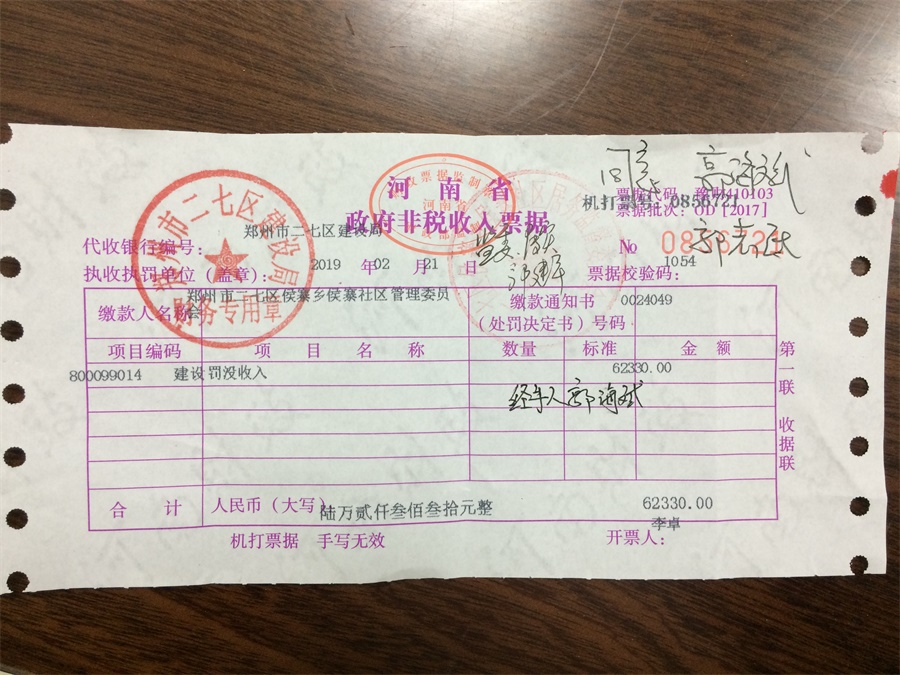 河 南 省
政府非税收入票据
票据代码：豫财410103
机打票号：0856721
票据批次：OD [2017]
郑州市二七区建设局
代收银行编号：
№ 0856721
执收执罚单位（盖章）：
2019 年02 月 21 日
1054
票据校验码：
郑州市二七区建设局
财务专用章
缴款人名称
郑州市二七区侯寨乡侯寨社区管理委员
会
缴款通知书 0024049
（处罚决定书）号码
项目编码 项 目 名 称 数量 标准 金 额
800099014 建设罚没收入 62330.00
经手人
合 计 人民币（大写）
陆万贰仟叁佰叁拾元整 62330.00
李卓
机打票据 手写无效 开票人：
第一联 收据联